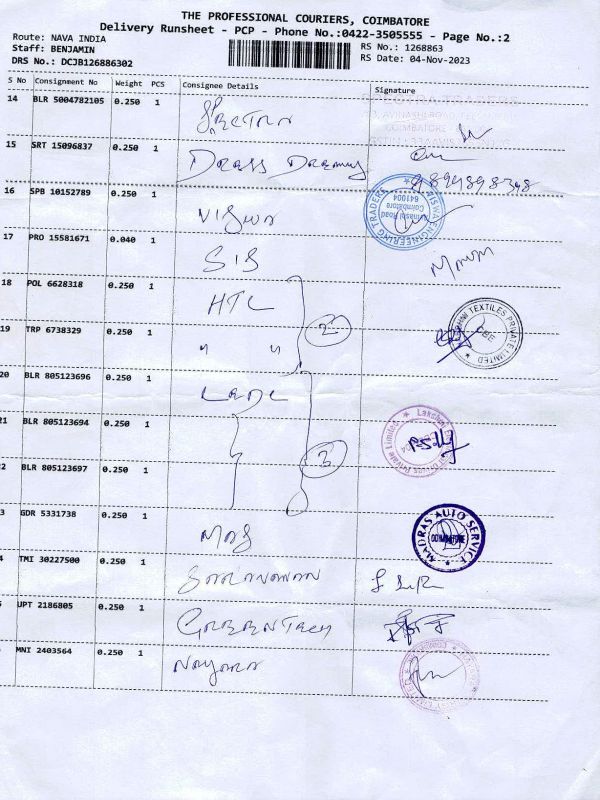 THE PROFESSIONAL COURIERS, COIMBATORE
Delivery Runsheet - PCP - Phone No.:0422-3505555 - Page No.:2
Route: NAVA INDIA RS No.: 1268863
Staff: BENJAMIN RS Date: 04-Nov-2023
DRS No.: DCJB126886302
S No Consignment No Weight PCS Consignee Details Signature
14 BLR 5004782105 0.250 1
COIMBATORE
15 SRT 15096837 0.250 1 Dress
16 SPB 10152789 0.250 1
VISWA ENGINEERING TRADERS
Avinashi Road
Coimbatore
641004
17 PRO 15581671 0.040 1 SIS
18 POL 6628318 0.250 1 HTL
2
19 TRP 6738329 0.250 1 " "
TEXTILES PRIVATE LIMITED
CBE
20 BLR 805123696 0.250 1
21 BLR 805123694 0.250 1
Private Limited
3
2 BLR 805123697 0.250 1
3 GDR 5331738 0.250 1 MAS
MADRAS AUTO SERVICE
COIMBATORE
4 TMI 30227500 0.250 1 Saravanan
UPT 2186805 0.250 1 GREEN Tech
MNI 2403564 0.250 1 Nayara